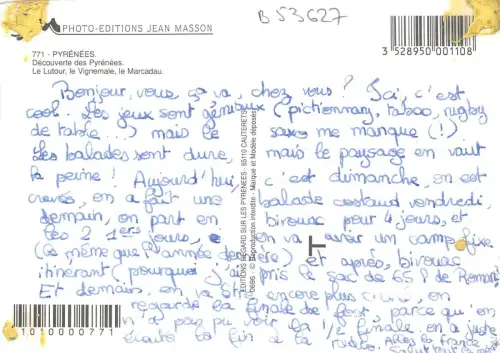 B 53627
PHOTO-EDITIONS JEAN MASSON
3 528950 001108
771 - PYRÉNÉES.
Découverte des Pyrénées.
Le Lutour, le Vignemale, le Marcadau.
Bonjour, vous ça va, chez vous ? Ici, c'est
cool. Les jeux sont géniaux (pictionnary, taboo, rugby
de table...) mais le saxo me manque (!)
Les balades sont dures, mais le paysage en vaut
la peine ! Aujourd'hui, c'est dimanche, on est
crevés, on a fait une balade costaud vendredi,
demain, on part en bivouac pour 4 jours, et
les 2 1ers jours, on va avoir un camp fixe
(le même que l'année dernière) et après, bivouac
itinérant (pourquoi j'ai pris le sac de 65 l de Romain
Et demain, on va être encore plus
regardé la finale de foot, parce qu'on
n'a pas pu voir la 1/2 finale, on a juste
écouté la fin à la radio. Allez la France
Salut tout le
EDITIONS REGARD SUR LES PYRENEES - 65110 CAUTERETS
© Reproduction interdite - Marque et Modèle déposés
1010000771